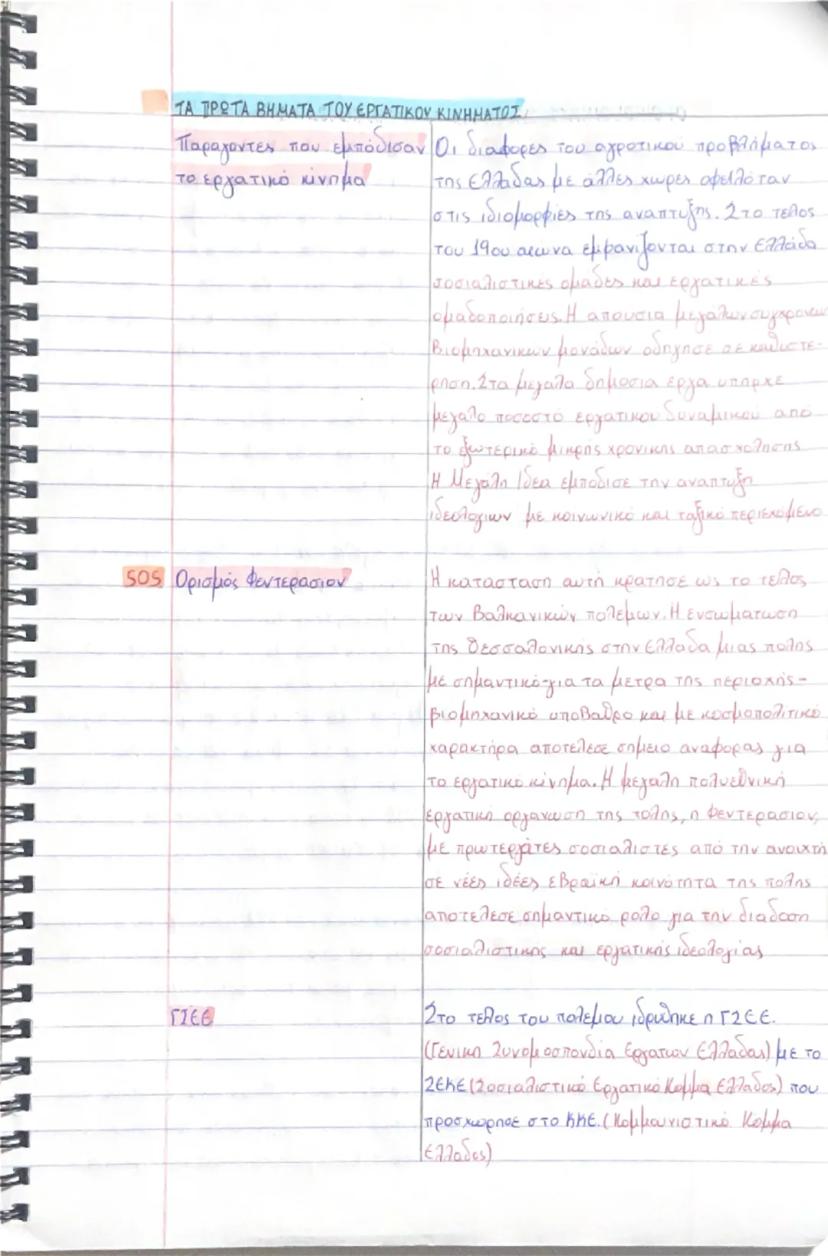 ΤΑ ΠΡΩΤΑ ΒΗΜΑΤΑ ΤΟΥ ΕΡΓΑΤΙΚΟΥ ΚΙΝΗΜΑΤΟΣ
Παράγοντες που εμπόδισαν
το εργατικό κίνημα
Οι διαφορες του αγροτικού προβλήματος
της Ελλάδας με άλλες χωρες οφειλόταν
στις ιδιομορφίες της αναπτυξης. Στο τελος
του 19ου αιωνα εμφανιζονται στην Ελλάδα
σοσιαλιστικες ομαδες και εργατικές
ομαδοποιήσεις. Η απουσια μεγαλων συγχρονων
βιομηχανικων μονάδων οδηγησε σε καθυστε-
ρηση. Στα μεγαλα δημοσια εργα υπηρχε
μεγαλο ποσοστό εργατικου δυναμικου από
το εξωτερικό μικρής χρονικης απασχολησης
Η Μεγάλη Ιδεα εμποδισε την αναπτυξη
ιδεολογιων με κοινωνικό και ταξικό περιεχόμενο
SOS Ορισμός Φεντερασιον
Η κατασταση αυτή κρατησε ως το τελος
των Βαλκανικών πολεμων. Η ενσωματωση
της Θεσσαλονικης στην Ελλάδα μιας πολης
με σημαντικό-για τα μετρα της περιοχής-
βιομηχανικό υποβαθρο και με κοσμοπολιτικό
χαρακτήρα αποτέλεσε σημειο αναφορας για
το εργατικό κίνημα. Η μεγαλη πολυεθνική
εργατικη οργανωση της πολης, η Φεντερασιον,
με πρωτεργάτες σοσιαλιστες από την ανοιχτη
σε νέες ιδέες εβραϊκή κοινότητα της πολης
αποτελεσε σημαντικό ρολο για την διαδοση
σοσιαλιστικης και εργατικής ιδεολογίας
ΓΣΕΕ
Στο τελος του πολεμου ιδρύθηκε η ΓΣΕΕ.
(Γενικη Συνομοσπονδία Εργατων Ελλάδας) με το
ΣΕΚΕ (Σοσιαλιστικό Εργατικό Κομμα Ελλάδος) που
προσχωρησε στο ΚΚΕ. (Κομμουνιστικό Κομμα
Ελλάδος)